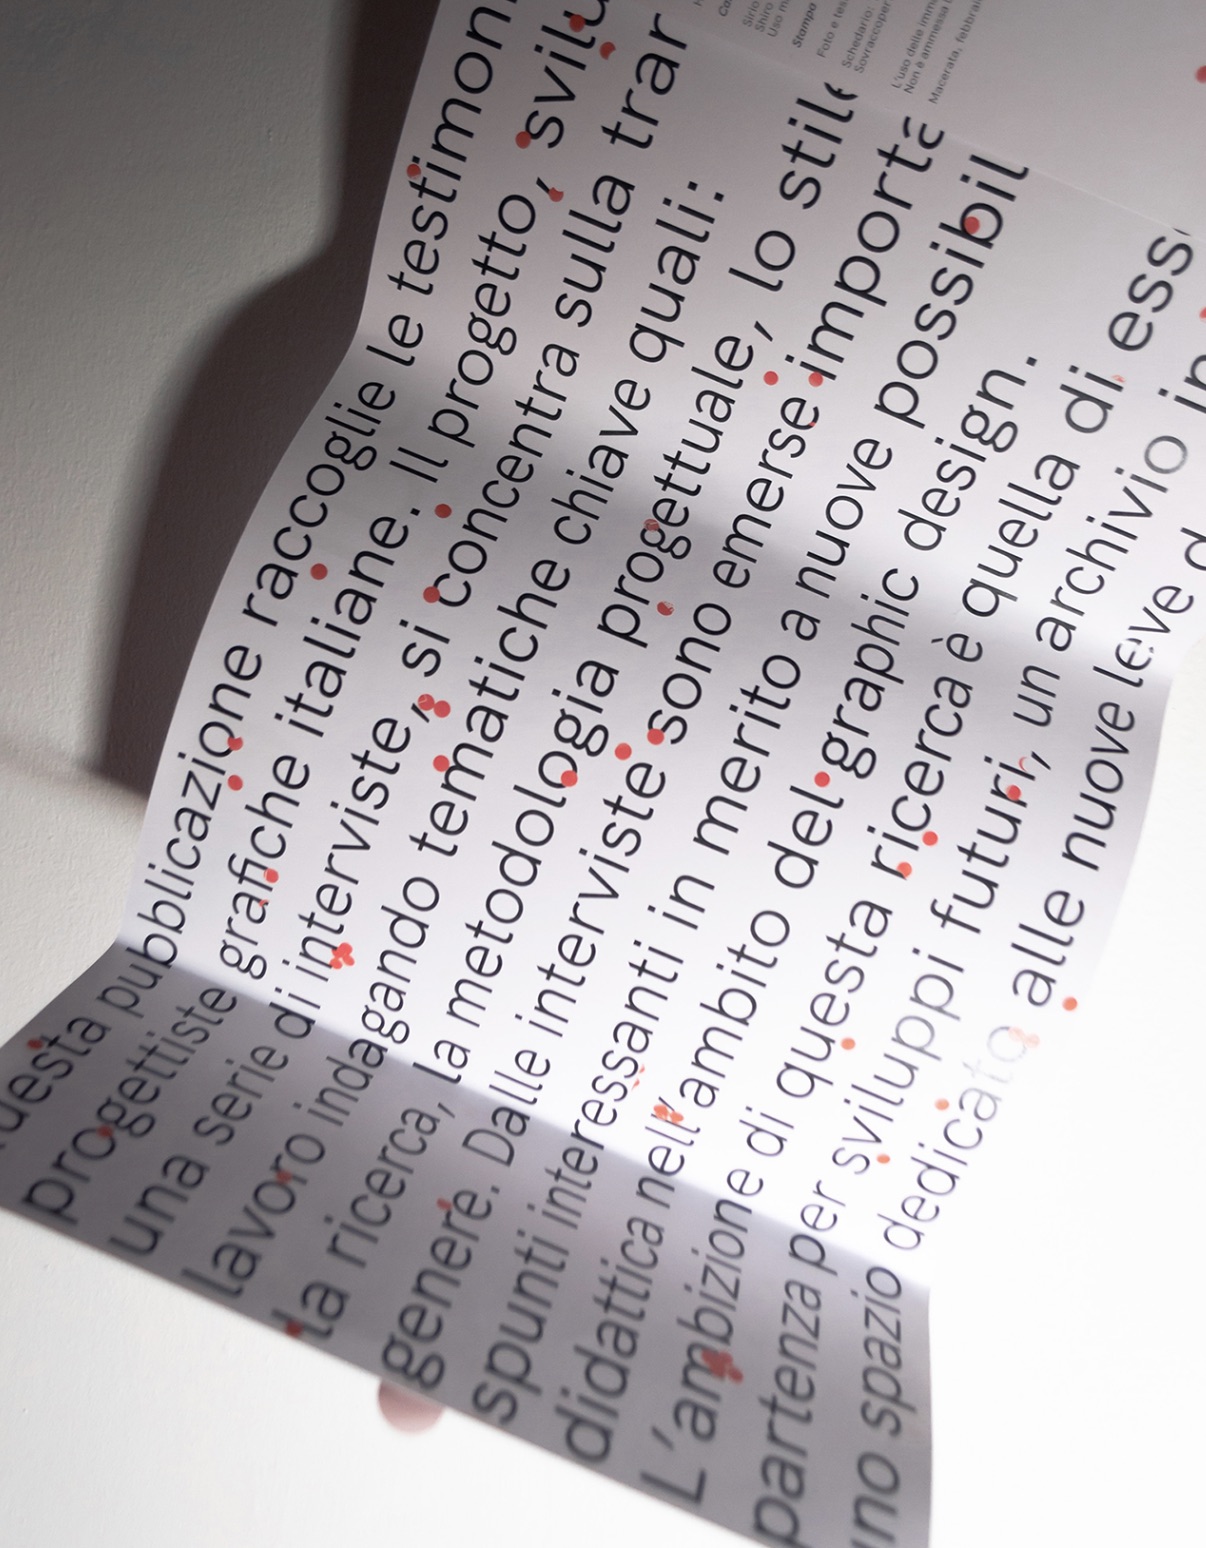 pubblicazione raccoglie le testimon
progettiste grafiche italiane. Il progetto, svilu
una serie di interviste, si concentra sulla trar
lavoro indagando tematiche chiave quali:
la ricerca, la metodologia progettuale, lo stile
genere. Dalle interviste sono emerse importa
spunti interessanti in merito a nuove possibil
didattica nell'ambito del graphic design.
L'ambizione di questa ricerca è quella di ess
partenza per sviluppi futuri, un archivio in
uno spazio dedicato alle nuove leve d
Stampa
Foto e tes
Schedario:
Sovraccoper
L'uso delle imm
Non è ammessa
Macerata, febbrai